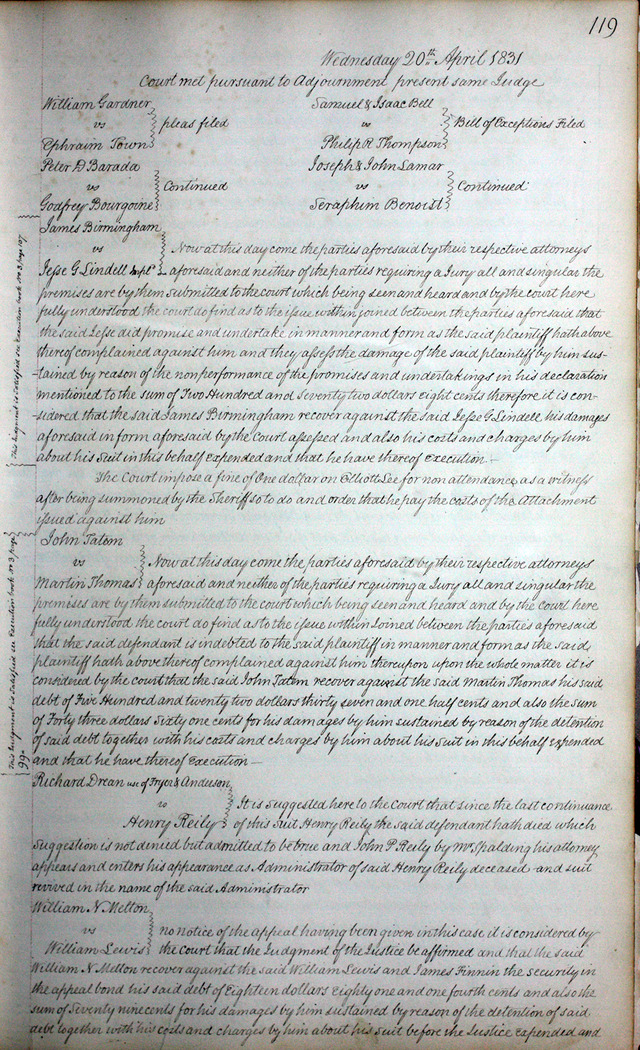 119
Wednesday 20th April 1831
Court met pursuant to Adjournment present same Judge
William Gardner
vs
Ephraim Town
pleas filed
Samuel & Isaac Bell
vs
Philip R Thompson
Bill of Exceptions Filed
Peter D Barada
vs
Godfrey Bourgoine
Continued
Joseph & John Lamar
vs
Seraphim Benoist
Continued
James Birmingham
vs
Jesse G Lindell
Now at this day come the parties aforesaid by their respective attorneys
aforesaid and neither of the parties requiring a Jury all and singular the
premises are by them submitted to the court which being seen and heard and by the court here
fully understood the court do find as to the issue within joined between the parties aforesaid that
the said Jesse did promise and undertake in manner and form as the said plaintiff hath above
thereof complained against him and they assess the damage of the said plaintiff by him sus-
-tained by reason of the nonperformance of the promises and undertakings in his declaration
mentioned to the sum of Two Hundred and Seventy two dollars eight cents therefore it is con-
sidered that the said James Birmingham recover against the said Jesse G Lindell his damages
aforesaid in form aforesaid by the Court assessed and also his costs and charges by him
about his Suit in this behalf expended and that he have thereof execution -
This Judgment is Satisfied see Execution book No 3 page 107
The Court impose a fine of One dollar on Elliott Lee for non attendance as a witness
after being summoned by the Sheriff so to do and order that he pay the costs of the Attachment
issued against him
John Tatem
vs
Martin Thomas
Now at this day come the parties aforesaid by their respective attorneys
aforesaid and neither of the parties requiring a Jury all and singular the
premises are by them submitted to the court which being seen and heard and by the court here
fully understood the court do find as to the issue within joined between the parties aforesaid
that the said defendant is indebted to the said plaintiff in manner and form as the said
plaintiff hath above thereof complained against him thereupon upon the whole matter it is
considered by the court that the said John Tatem recover against the said Martin Thomas his said
debt of Five Hundred and twenty two dollars thirty seven and one half cents and also the sum
of Forty three dollars Sixty one cents for his damages by him sustained by reason of the detention
of said debt together with his costs and charges by him about his Suit in this behalf expended
and that he have thereof Execution —
This Judgment is Satisfied see Execution book No 3 page
99
Richard Drean use of Fryer & Anderson
vs
Henry Reily
It is Suggested here to the Court that since the last continuance
of this Suit Henry Reily the said defendant hath died which
Suggestion is not denied but admitted to be true and John P Reily by Mr Spalding his attorney
appears and enters his appearance as Administrator of said Henry Reily deceased and suit
revived in the name of the said Administrator
William N Melton
vs
William Lewis
no notice of the appeal having been given in this case it is considered by
the Court that the Judgment of the Justice be affirmed and that the said
William N Melton recover against the said William Lewis and James Finnin the security in
the appeal bond his said debt of Eighteen dollars eighty one and one fourth cents and also the
sum of Seventy nine cents for his damages by him sustained by reason of the detention of said
debt together with his costs and charges by him about his Suit before the Justice expended and